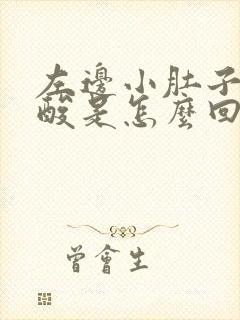 左邊小肚子
酸是怎麼回
曾會生